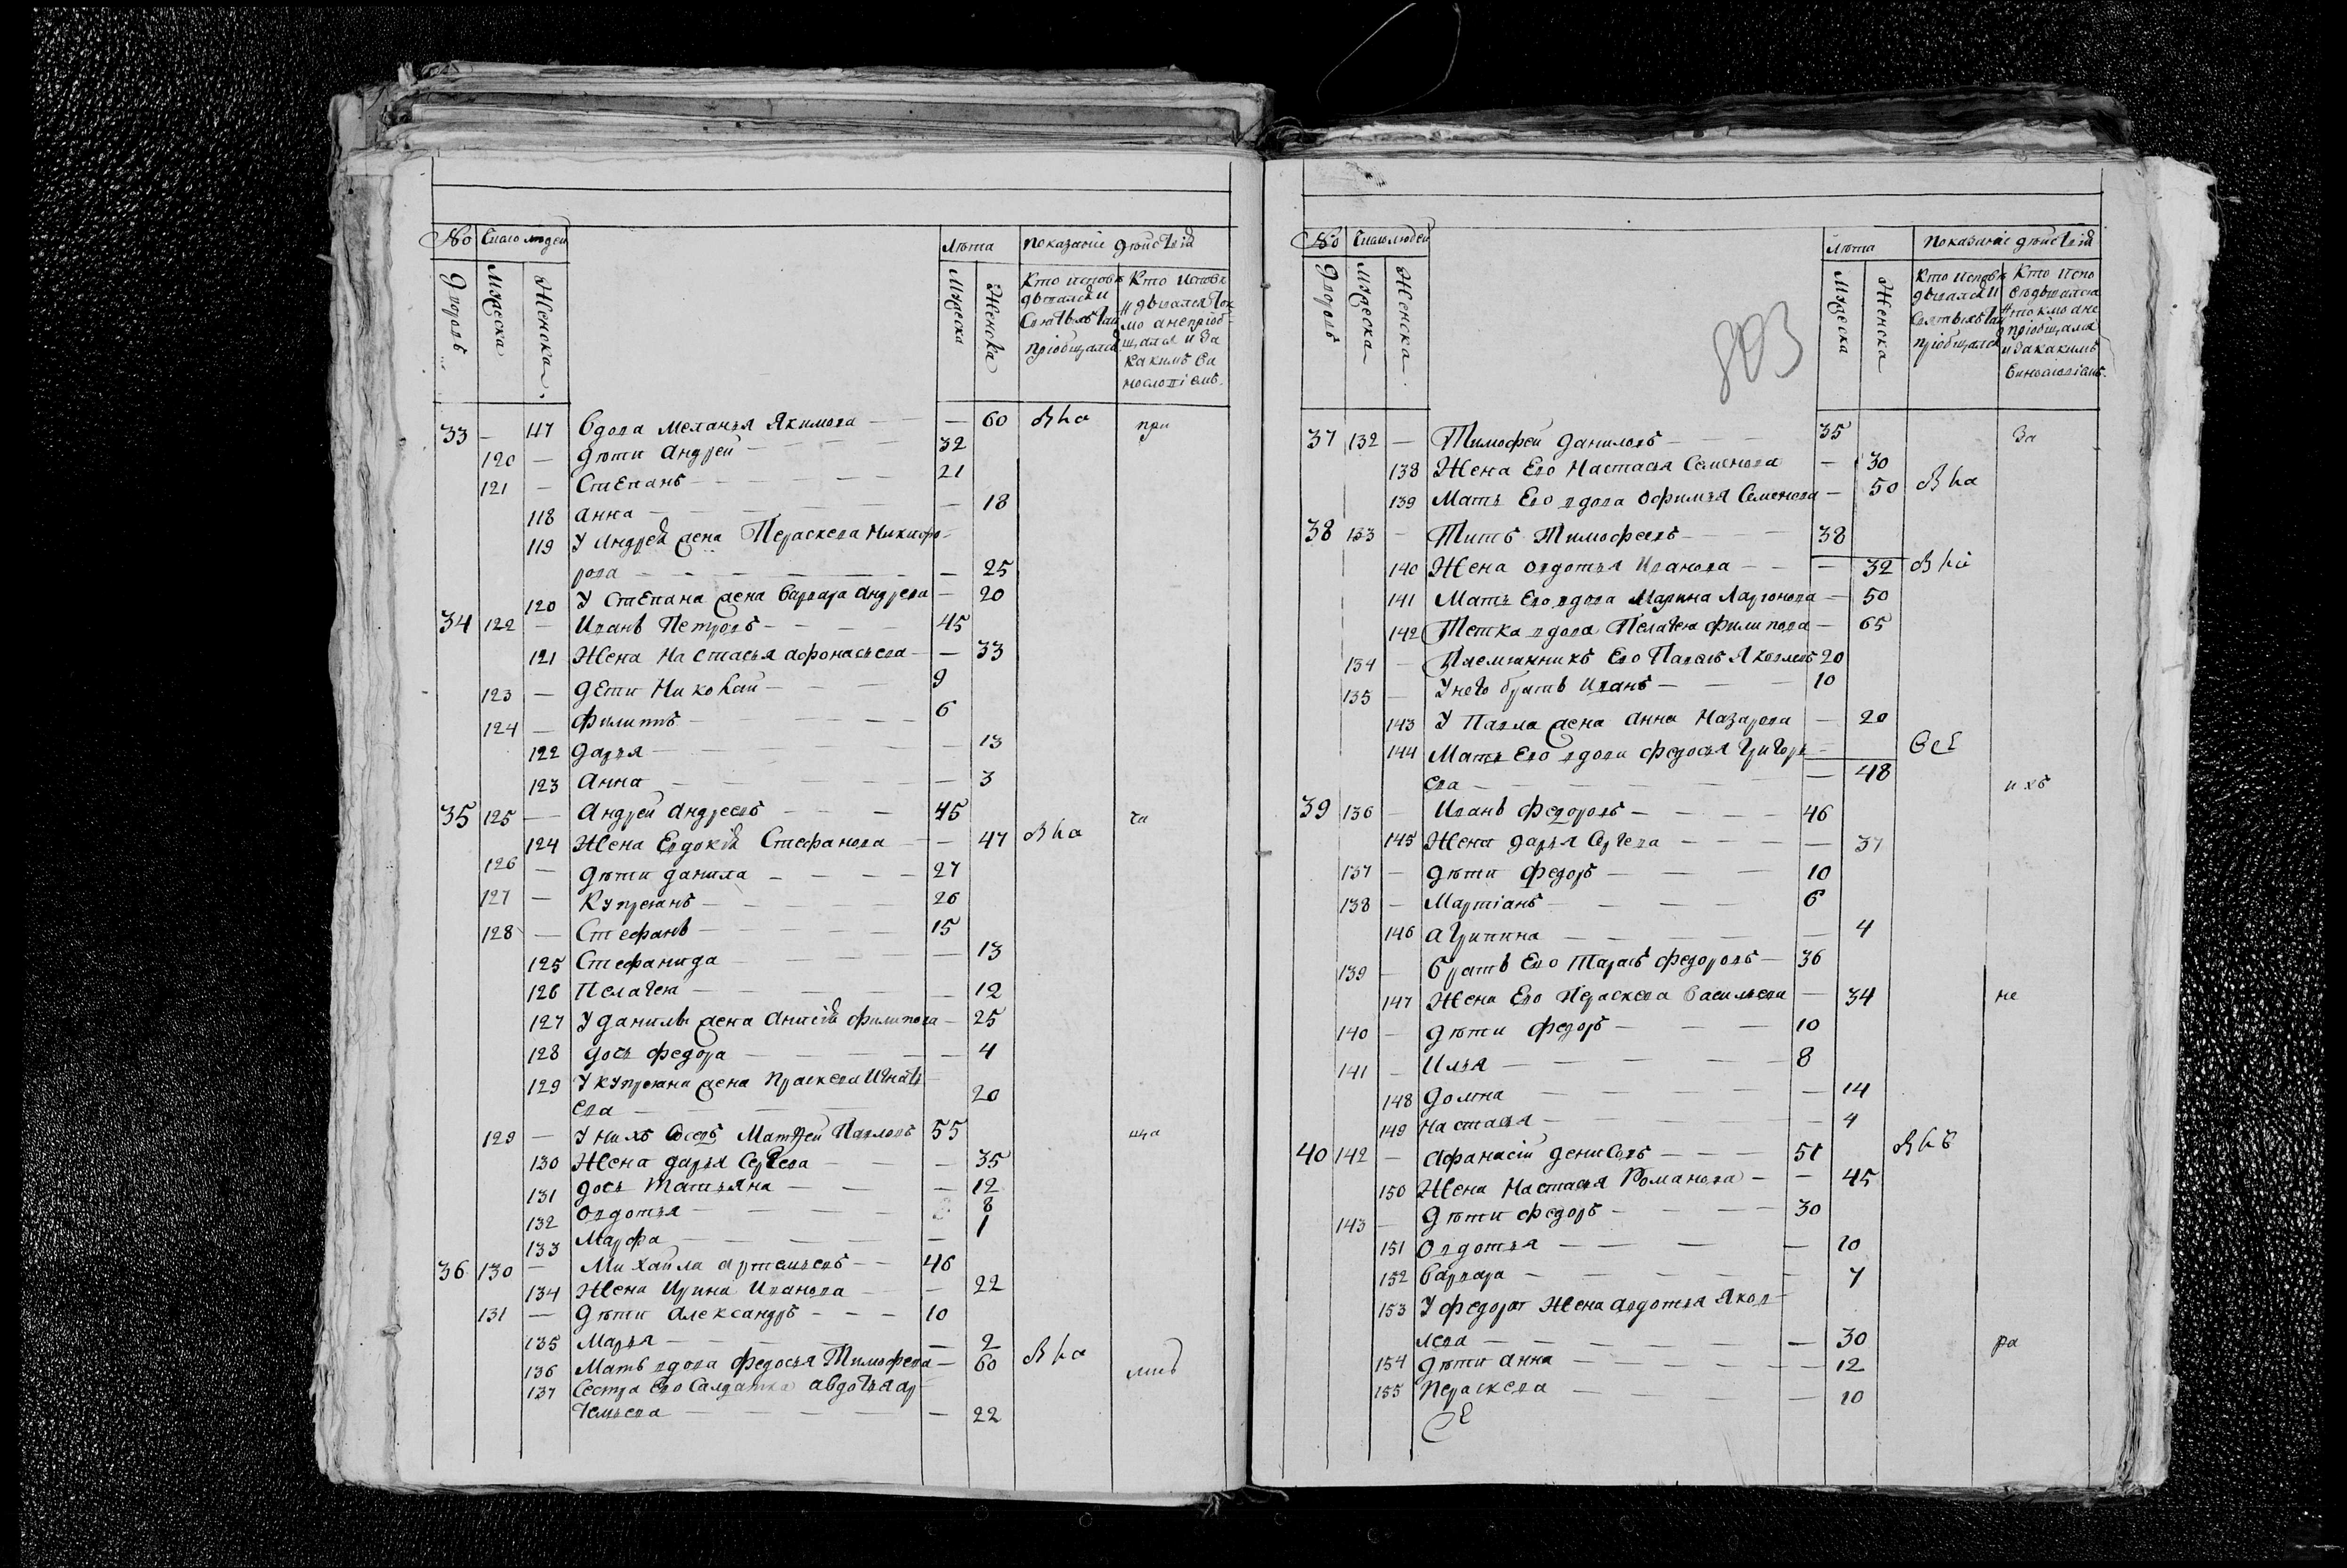 No Число людей Лѣта Показаніе дѣйствій
Дворовъ Мужеска Женска Мужеска Женска
Кто исповѣдывался и Святыхъ Таин пріобщался
Кто исповѣдывался токмо а не пріобщался и за какимъ винословіемъ.
33 — 117 Вдова Меланья Якимова — — 60 Вка при
120 — Дѣти Андрей — 32
121 — Степанъ — 21
118 Анна — — 18
119 У Андрея жена Пераскева Никифо-
рова — — 25
120 У Степана жена Варвара Андреева — 20
34 122 — Иванъ Петровъ — 45
121 Жена Настасья Афонасьева — — 33
123 — Дети Николай — 9
124 — Филиппъ — 6
122 Дарья — — 13
123 Анна — — 3
35 125 — Андрей Андреевъ — 45 ча
124 Жена Евдокія Стефанова — — 47 Вка
126 — Дѣти Данила — 27
127 — Купреянъ — 26
128 — Стефанъ — 15
125 Стефанида — — 13
126 Пелагея — — 12
127 У Данилы жена Анисія Филипова — 25
128 Дочь Федора — — 4
129 У Купреяна жена Праскева Игнать
ева — 20
129 — У нихъ Соседъ Матвей Павловъ 55 ща
130 Жена Дарья Сергеева — — 35
131 Дочь Татьяна — — 12
132 Овдотья — 8
133 Марфа — — 1
36 130 — Михайла Артемьевъ — 46
134 Жена Ирина Иванова — — 22
131 — Дѣти Александръ — 10
135 Марья — — 2
136 Мать вдова Федосья Тимофеева — 60 Вка
137 Сестра Его Салдатка Авдотья Ар- лиѣ
темьева — — 22
No Число людей Лѣта Показаніе дѣйствій
Дворовъ Мужеска Женска Мужеска Женска
Кто исповѣдывался и Святыхъ Таи пріобщался
Кто исповѣдывался токмо а не пріобщался и за какимъ винословіемъ.
803
37 132 — Тимофей Даниловъ — 35 За
138 Жена Его Настасья Семенова — 30
139 Мать Его вдова Офимья Семенова — 50 Вка
38 133 — Титъ Тимофеевъ — 38
140 Жена Овдотья Иванова — — 32 Вка
141 Мать Его вдова Марина Ларионова — 50
142 Тетка вдова Пелагея Филипова — 65
134 — Племянникъ Его Павелъ Яковлевъ 20
135 — У него братъ Иванъ — 10
143 У Павла жена Анна Назарова — 20
144 Мать Его вдова Федосья Григорь — Всѣ
ева — — 48 ихъ
39 136 — Иванъ Федоровъ — 46
145 Жена Дарья Сергеева — — 37
137 — Дѣти Федоръ — 10
138 — Мартіанъ — 6
146 Агрипина — — 4
139 — Братъ Его Тарасъ Федоровъ — 36
147 Жена Его Пераскева Васильева — 34 не
140 — Дѣти Федоръ — 10
141 — Илья — 8
148 Домна — — 14
149 Настасья — — 4
40 142 — Афанасій Денисовъ — 51 Вкѣ
150 Жена Настасья Романова — — 45
143 — Дѣти Федоръ — 30
151 Овдотья — — 10
152 Варвара — — 7
153 У Федора Жена Авдотья Яков-
лева — — 30 ра
154 Дѣти Анна — — 12
155 Пераскева — — 10